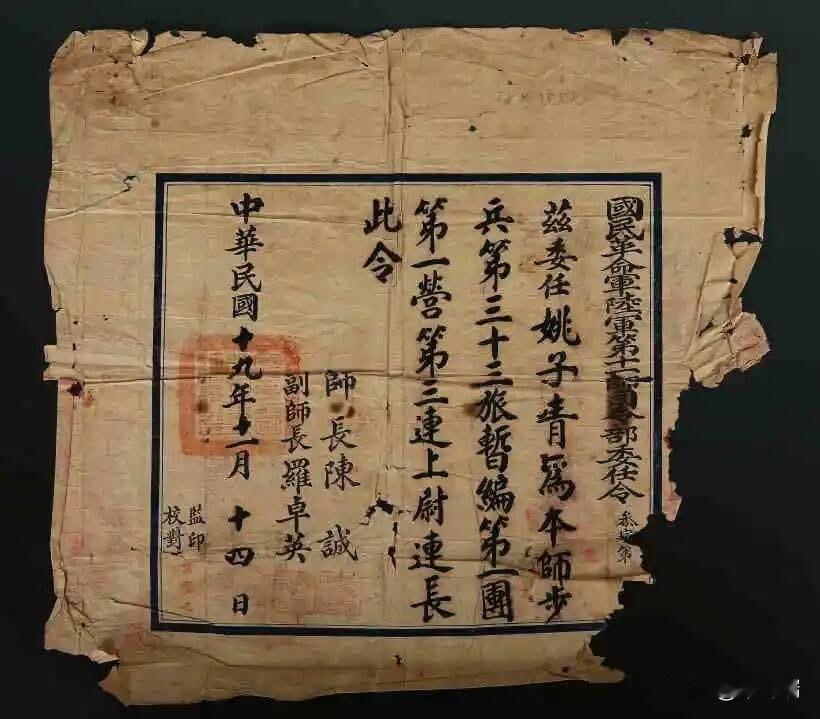 國民革命軍陸軍第十一師司令部委任令
參字第
茲委任姚子青為本師步
兵第三十二旅暫編第一團
第一營第三連上尉連長
此令
師長陳誠
副師長羅卓英
中華民國十九年十一月十四日
監印
校對